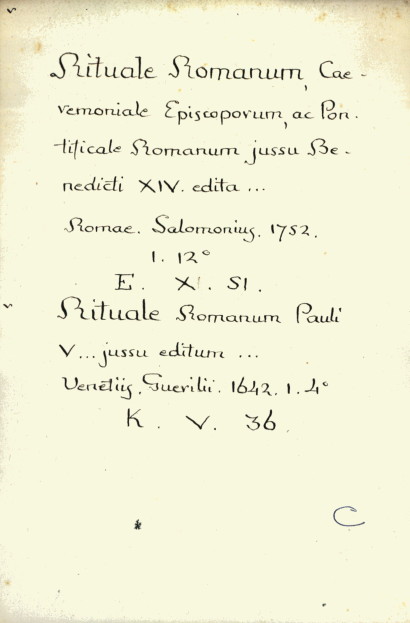 Rituale Romanum, Cae-
remoniale Episcoporum, ac Pon-
tificale Romanum jussu Be-
nedicti XIV. edita ...
Romae. Salomonius. 1752.
1. 12°
E. XI. 51.
Rituale Romanum Pauli
V... jussu editum ...
Venetiis. Guerilii. 1642. 1. 4°
K. V. 36.
C